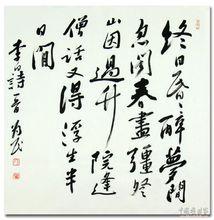 終日昏々醉夢間
忽聞春盡彊登
山因過竹院逢
僧話又得浮生半
日閒
李涉詩